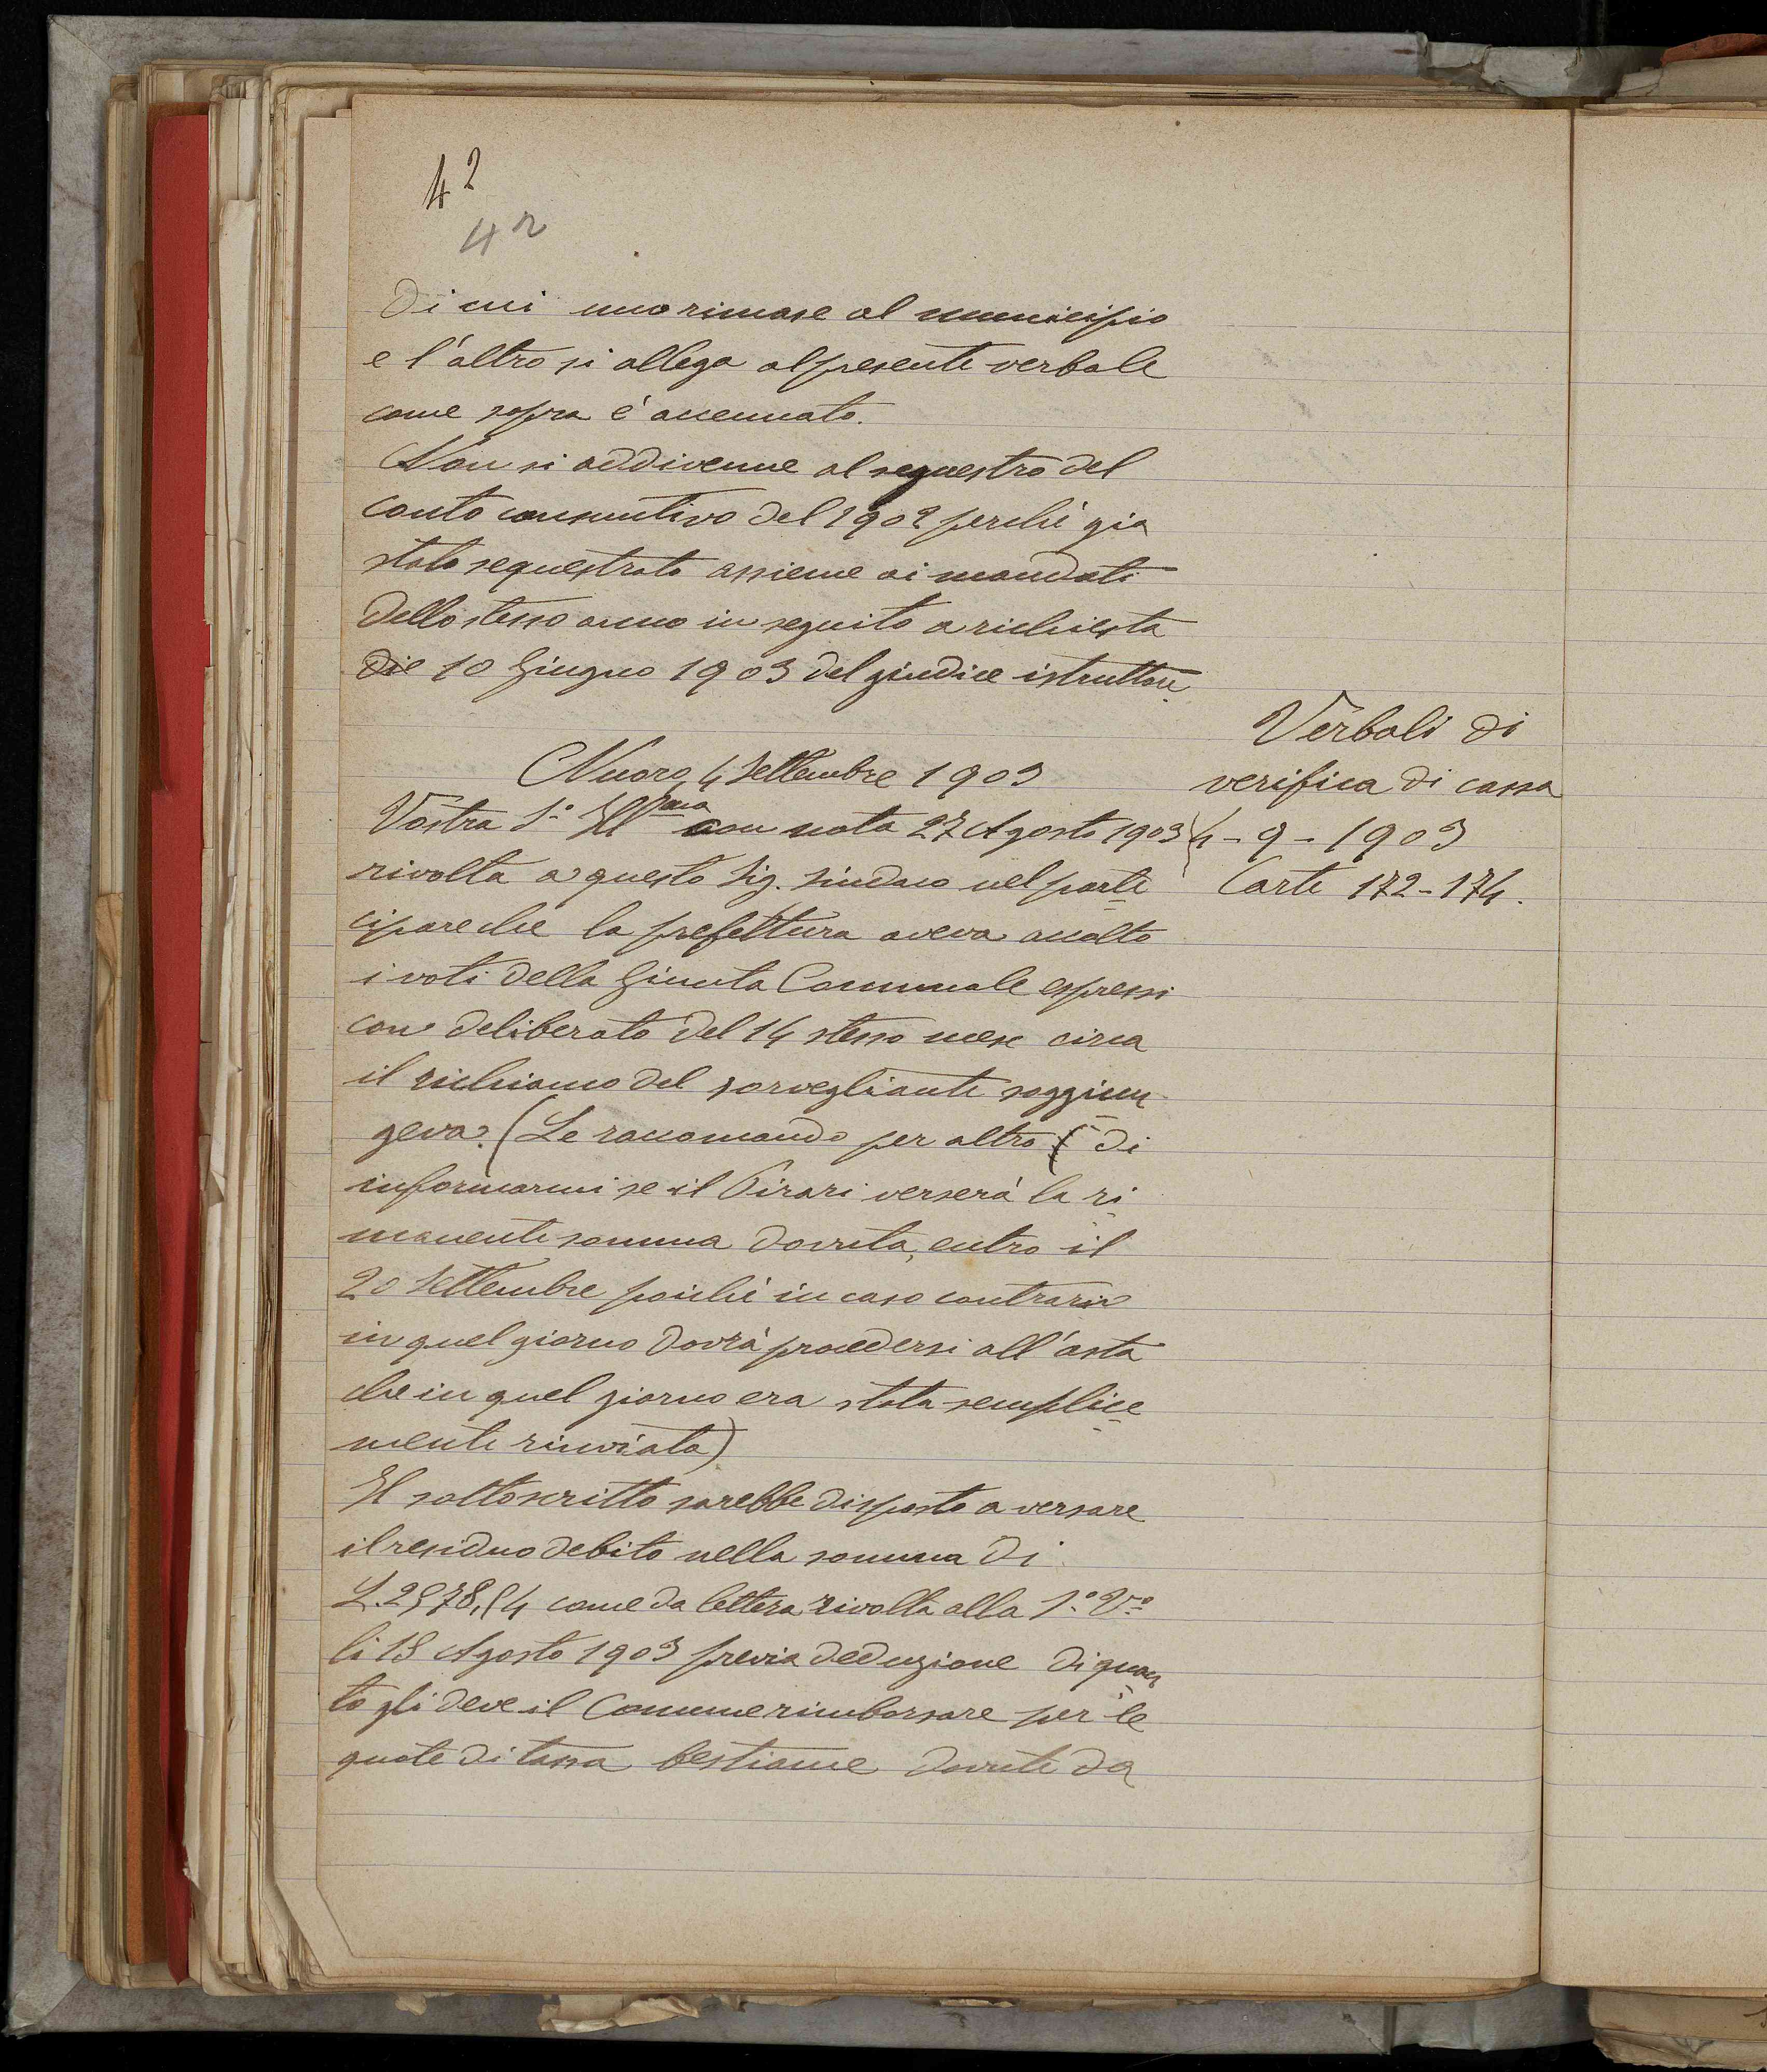 42
42
Di cui uno rimase al municipio
e l'altro si allega al presente verbale
come sopra è accennato.
Non si addivenne al sequestro del
conto consuntivo del 1902 perchè gia
stato sequestrato assieme ai mandati
dello stesso anno in seguito a richiesta
die 10 Giugno 1903 del giudice istruttore
Verbali di
verifica di cassa
4-9-1903
Carte 172-174.
Nuoro, 4 Settembre 1903
Vostra S.a Ill.ma con nota 27 Agosto 1903
rivolta a questo Sig. Sindaco nel parte
cipare che la prefettura aveva accolto
i voti della Giunta Comunale espressi
con deliberato del 14 stesso mese circa
il richiamo del sorvegliante soggiun
geva. (Le raccomando per altro ( di
informarmi se il Pirari verserà la ri
manente somma dovuta, entro il
20 Settembre poichè in caso contrario
in quel giorno dovrà procedersi all'asta
che in quel giorno era stata semplice
mente rinviata)
Il sottoscritto sarebbe disposto a versare
il residuo debito nella somma di
come da lettera rivolta alla S.a V.a
li 18 Agosto 1903 previa deduzione di quan
to gli deve il Comune rimborsare per le
quote di tassa bestiame dovute da